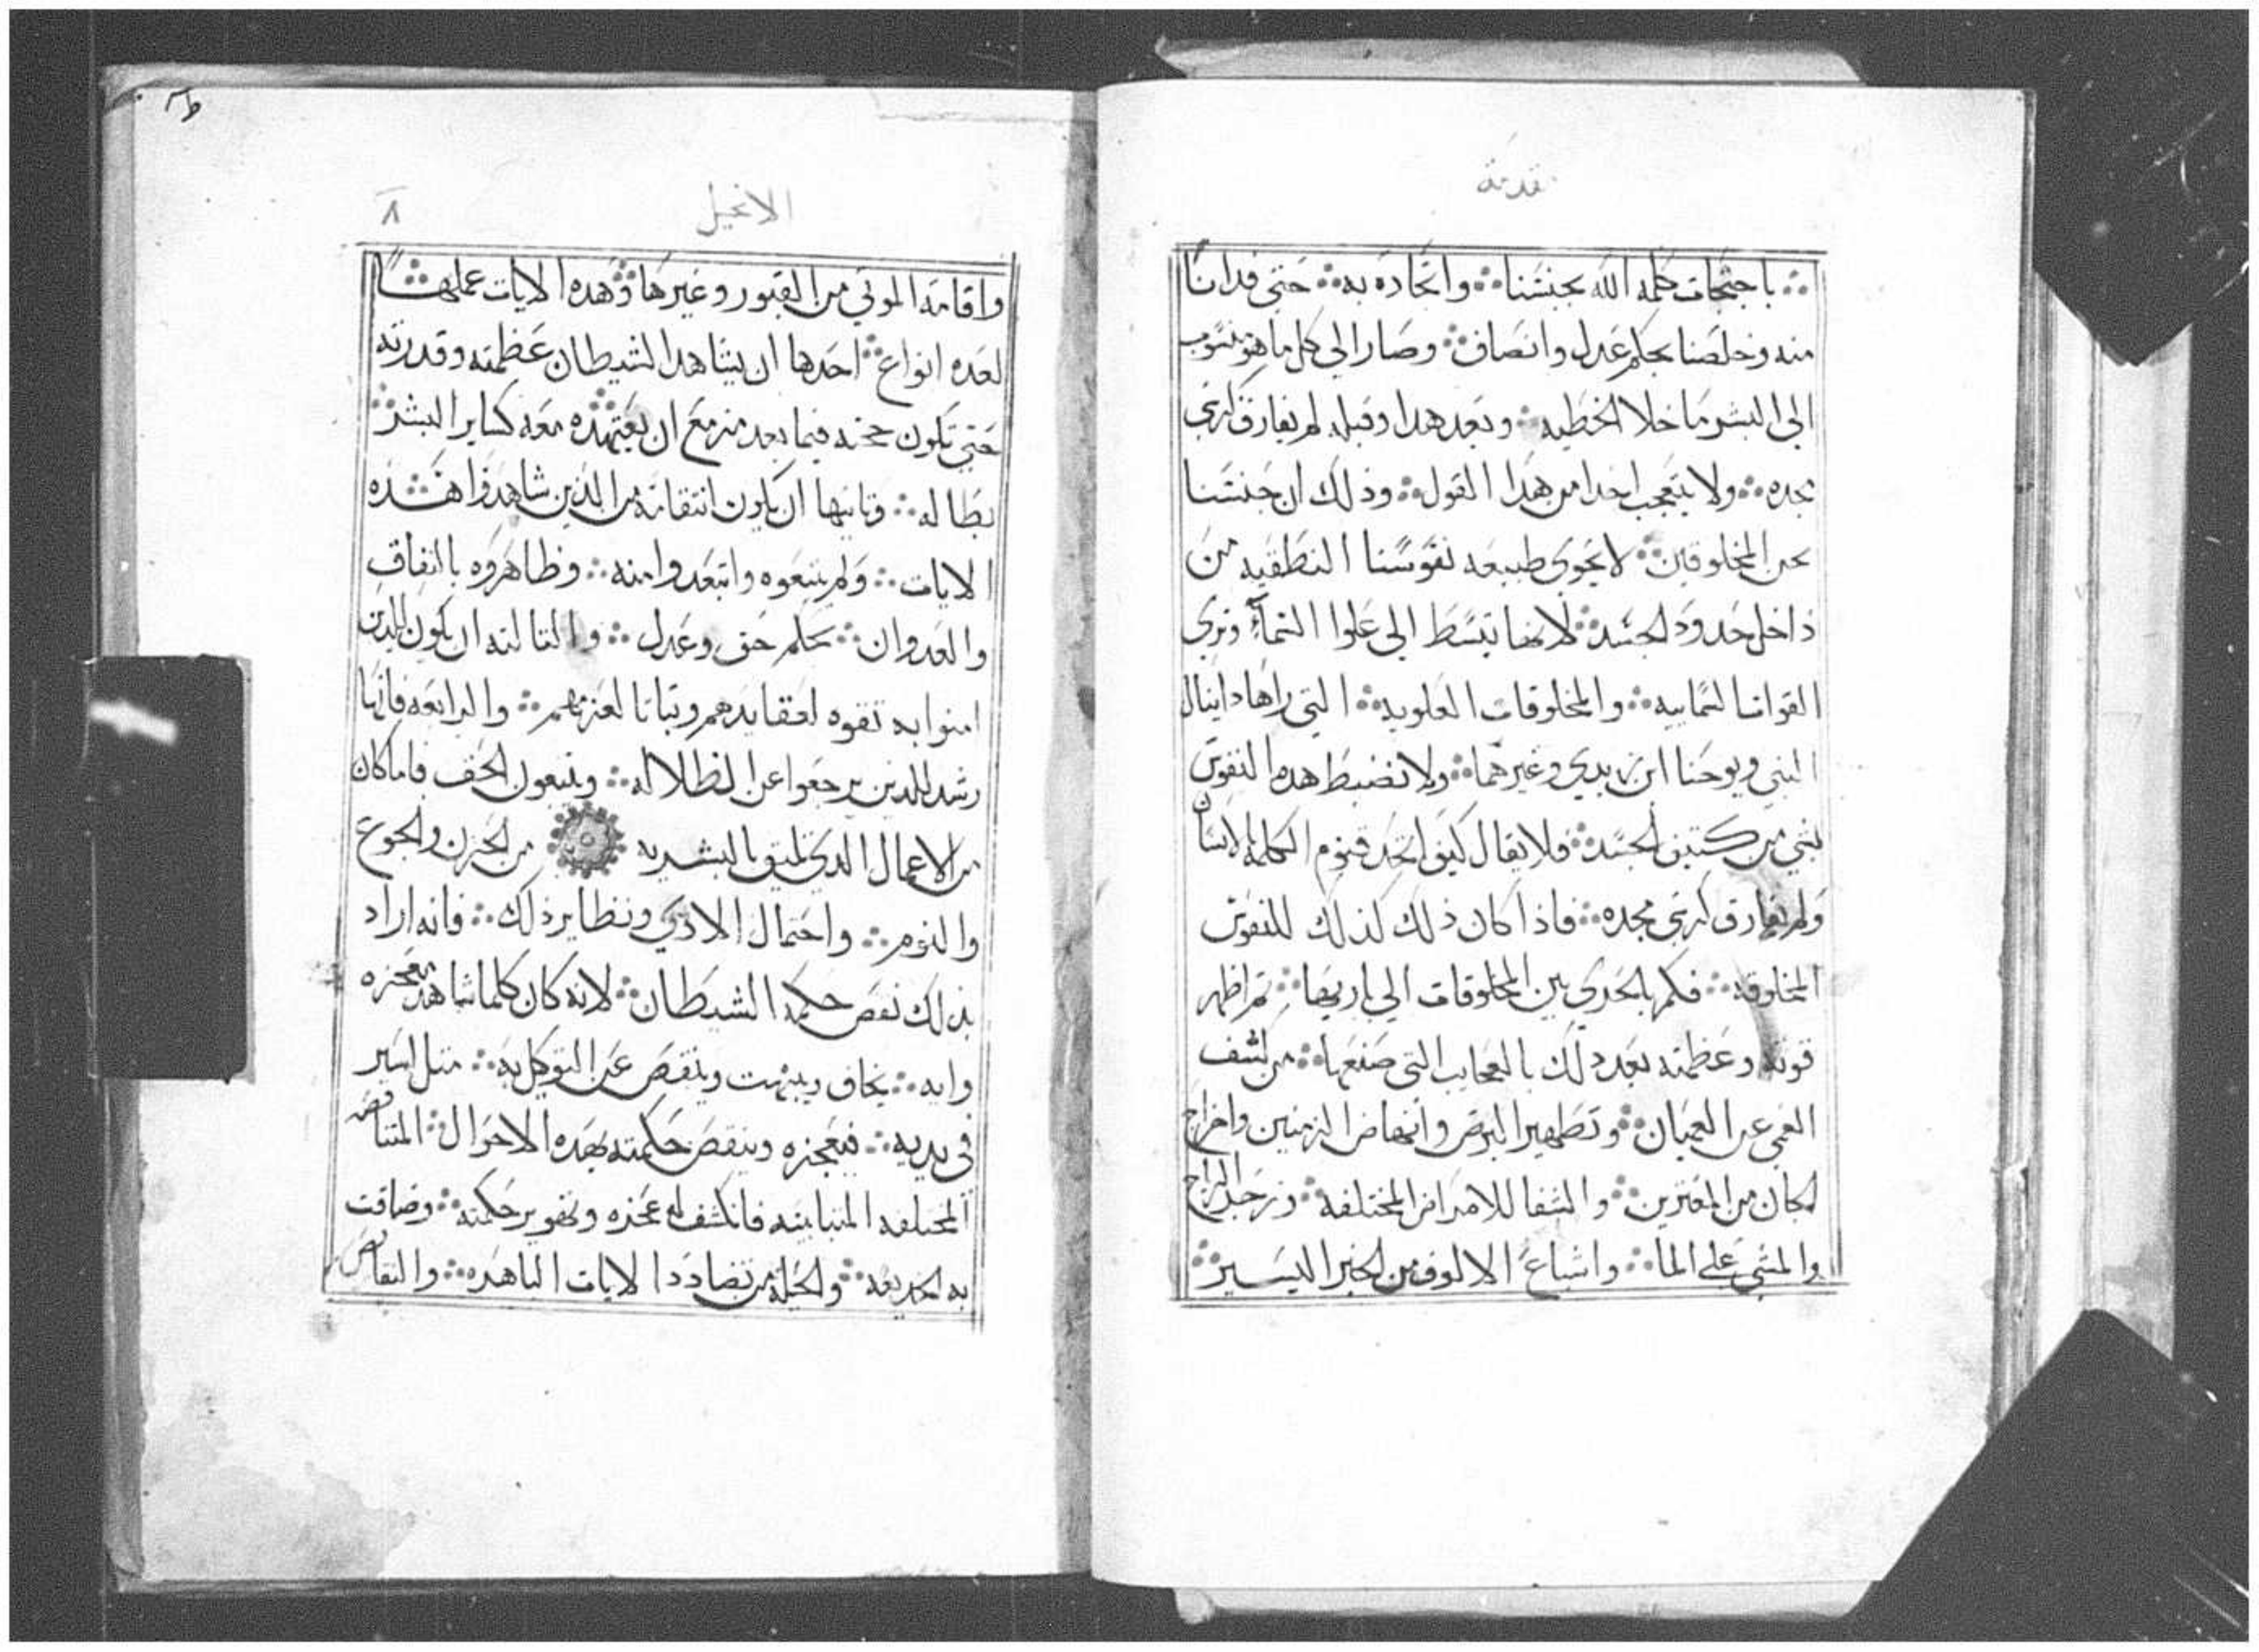 مقدمة
باحتجات كلمه الله بجنسنا ۞ واتحاده به ۞ حتي فدانا
منه وخلصنا بحكم عدل وانصاف ۞ وصار الي كل ما هو منسوب
الي البشر ما خلا الخطيه ۞ وبعد هدا وقبله لم يفارق كرسي
مجده ۞ ولا يتعجب احدا من هدا القول ۞ وذلك ان جنسنا
نحن المخلوقين ۞ لا يحوي طبيعه نفوسنا النطقيه من
داخل حدود الجسد ۞ لانها تبسط الي علوا السماء وتري
القوات السماييه ۞ والمخلوقات العلويه ۞ التي راها دانيال
النبي ويوحنا ابن زبدي وغيرهما ۞ ولا تضبط هده النفوس
بشي من كتيف الجسد ۞ فلا يقال كيف اتحد قنوم الكلمه بالانسان
ولم يفارق كرسي مجده ۞ فاذا كان ذلك كذلك للنفوس
المخلوقه ۞ فكم بالحري بين المخلوقات الي باريها ۞ تم اظهر
قوته وعظمته بعد دلك بالعجايب التي صنعها ۞ من كشف
العمي عن العميان ۞ وتطهير البرص وانهاض الزمنين واخراج
الجان من المعترين ۞ والشفا للامراض المختلفه ۞ وزجر الرياح
والمشي علي الما ۞ واشباع الالوف من الخبز اليسير ۞
الانجيل
٨
واقامه الموتي من القبور وغيرها ۞ وهده الايات عملها
لعده انواع ۞ احدها ان يشاهد الشيطان عظمته وقدرته
حتي تكون حجته فيما بعد مزمع ان يعتمده معه كساير البشر
بطاله ۞ وتانيها ان يكون انتقامه من الذين شاهدوا هده
الايات ۞ ولم يتبعوه وابتعدوا منه ۞ وظاهروه بالنفاق
والعدوان ۞ بحكم حق وعدل ۞ والتالته ان يكون للدين
امنوا به تقوه لعقايدهم وتباتا لعزمهم ۞ والرابعه فانها
رشد للدين يرجعوا عن الظلاله ۞ ويتبعون الحق فاما كان
من الاعمال الدي تليق بالبشريه ۞ من الحزن والجوع
والنوم ۞ واحتمال الادي ونظاير ذلك ۞ فانه اراد
بذلك نقص حكمه الشيطان ۞ لانه كان كلما شاهد معجزه
وايه ۞ يخاف ويبهت وينقص عن التوكل به ۞ متل اسير
في يديه ۞ فيعجزه وينقص حكمته بهده الاحوال ۞ المتناقصه
المختلفه المتباينه فانكشف له عجزه وتهوير حكمته ۞ وضاقت
به الخديعه ۞ والحيله من تضادد الايات الباهره ۞ والنقايص